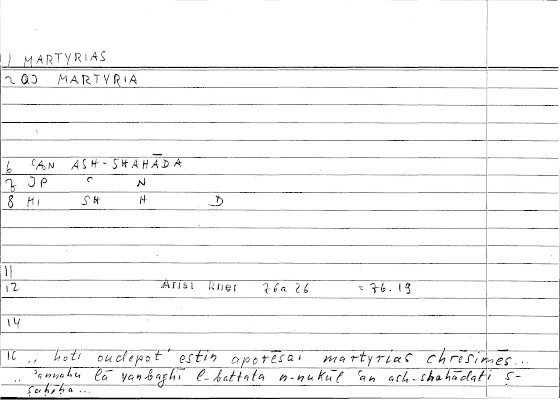 1) MARTYRIAS
2 QJ MARTYRIA
6 ʿAN ASH-SHAHĀDA
7 JP ʿ N
8 MI SH H D
11
12 Arist Rhet 76a 26 = 76.19
14
16 ,, hoti oudepot' estin aporēsai martyrias chrēsimēs...
,, ʾannahu lā yanbaghī l-battata n-nukūl ʿan ash-shahādati ṣ-
ṣaḥīḥa...